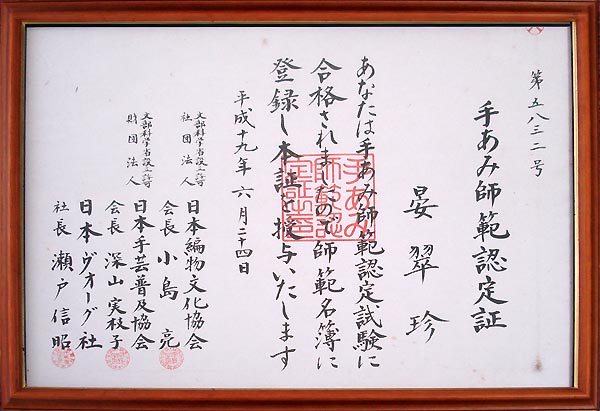 第五八三二号
手あみ師範認定証
晏翠珍
あなたは手あみ師範認定試験に
合格されましたので師範名簿に
登録し本証を授与いたします
平成十九年六月二十四日
文部科学省設立許可
社団法人
日本編物文化協会
会長 小島亮
文部科学省設立許可
財団法人
日本手芸普及協会
会長 深山実枝子
日本ヴォーグ社
社長 瀬戸信昭